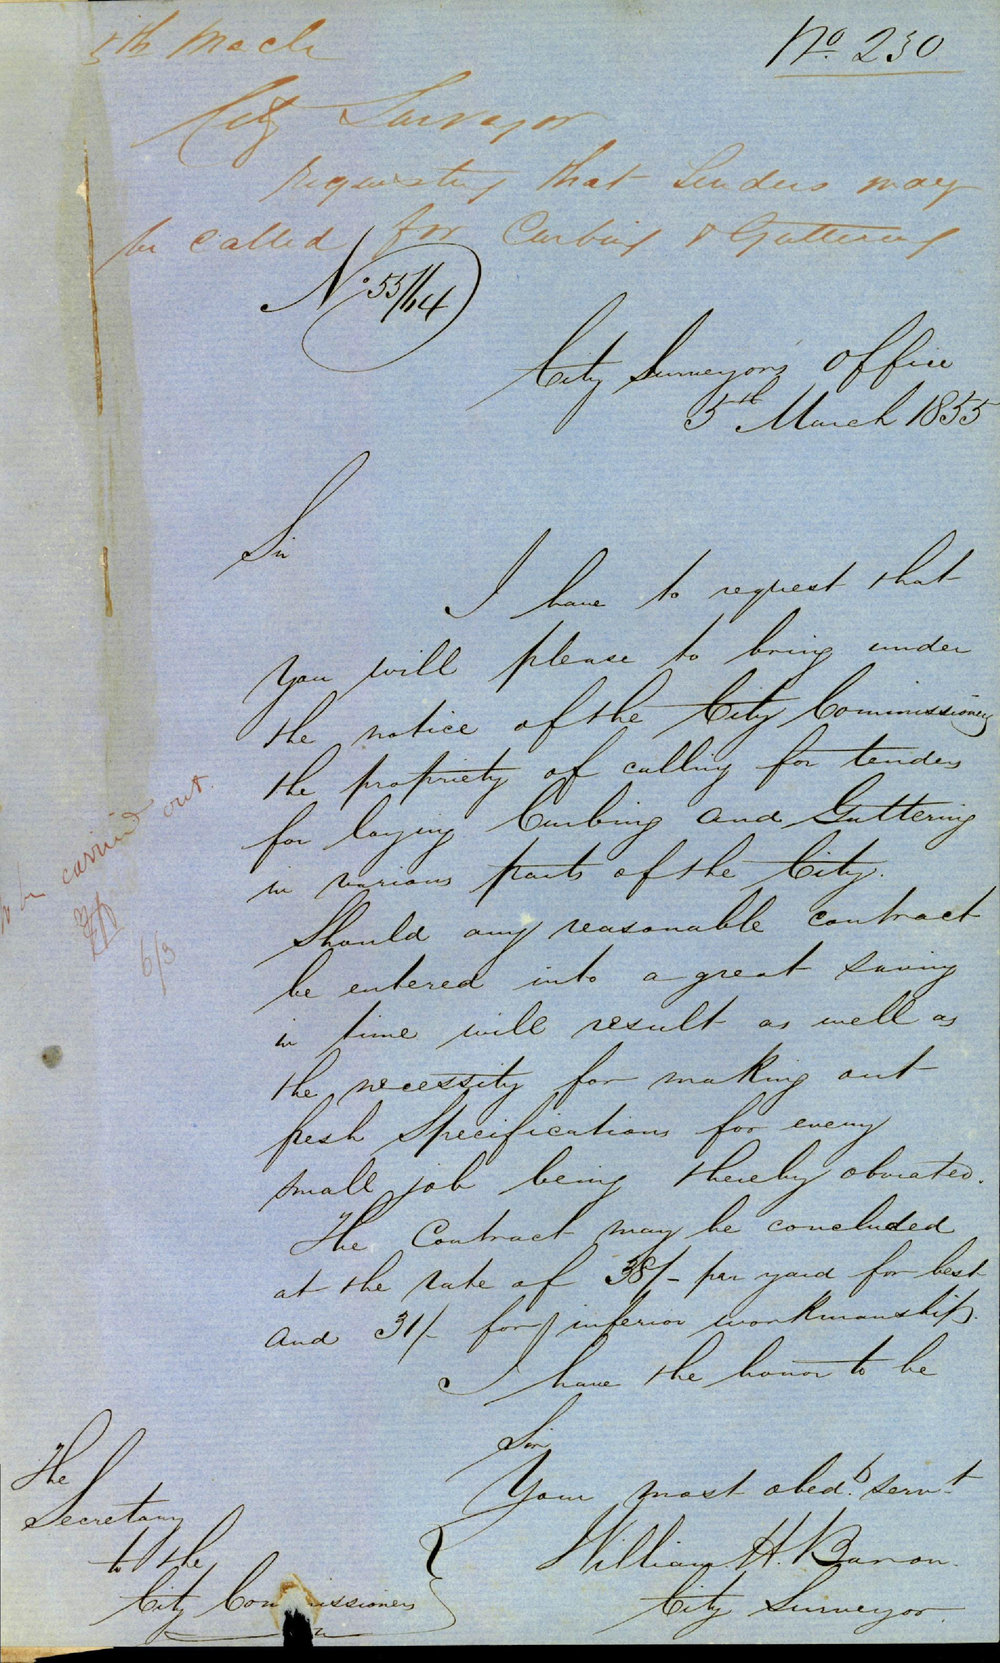 5th March
No. 230
City Surveyor
requesting that Tenders may
be called for Curbing & Guttering
No. 55/164
City Surveyors Office
5th March 1855
Sir
I have to request that
you will please to bring under
the notice of the City Commissioners
the propriety of calling for tenders
for laying Curbing and Guttering
in various parts of the City.
Should any reasonable contract
be entered into a great saving
in time will result as well as
the necessity for making out
fresh Specifications for every
small job being thereby obviated.
The Contract may be concluded
at the rate of 38/- per yard for best
and 31/- for inferior workmanship.
I have the honor to be
Sir
Your most obedt. servt
William H. Baron.
City Surveyor.
The
Secretary
to the
City Commissioners
To be carried out.
6/3